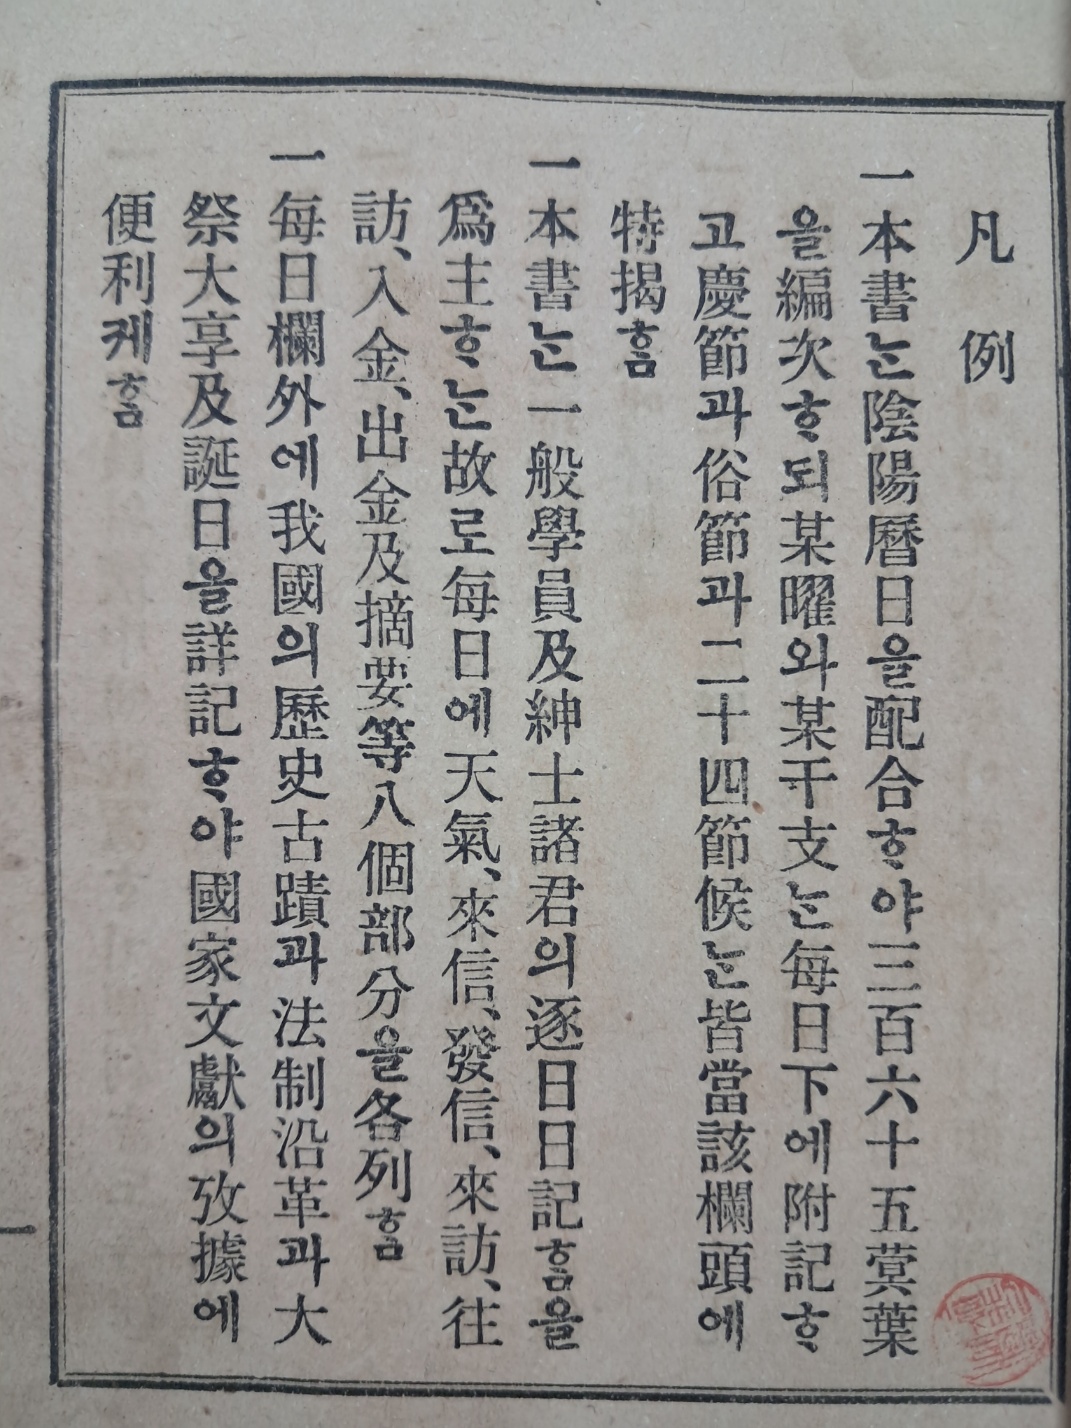 凡例
一本書ᄂᆞᆫ陰陽曆日을配合ᄒᆞ야三百六十五蓂葉
을編次ᄒᆞ되某曜와某干支ᄂᆞᆫ每日下에附記ᄒᆞ
고慶節과俗節과二十四節候ᄂᆞᆫ皆當該欄頭에
特揭ᄒᆞᆷ
一本書ᄂᆞᆫ一般學員及紳士諸君의逐日日記ᄒᆞᆷ을
爲主ᄒᆞᄂᆞᆫ故로每日에天氣、來信、發信、來訪、往
訪、入金、出金及摘要等八個部分을各列ᄒᆞᆷ
一每日欄外에我國의歷史古蹟과法制沿革과大
祭大享及誕日을詳記ᄒᆞ야國家文獻의攷據에
便利케ᄒᆞᆷ
一